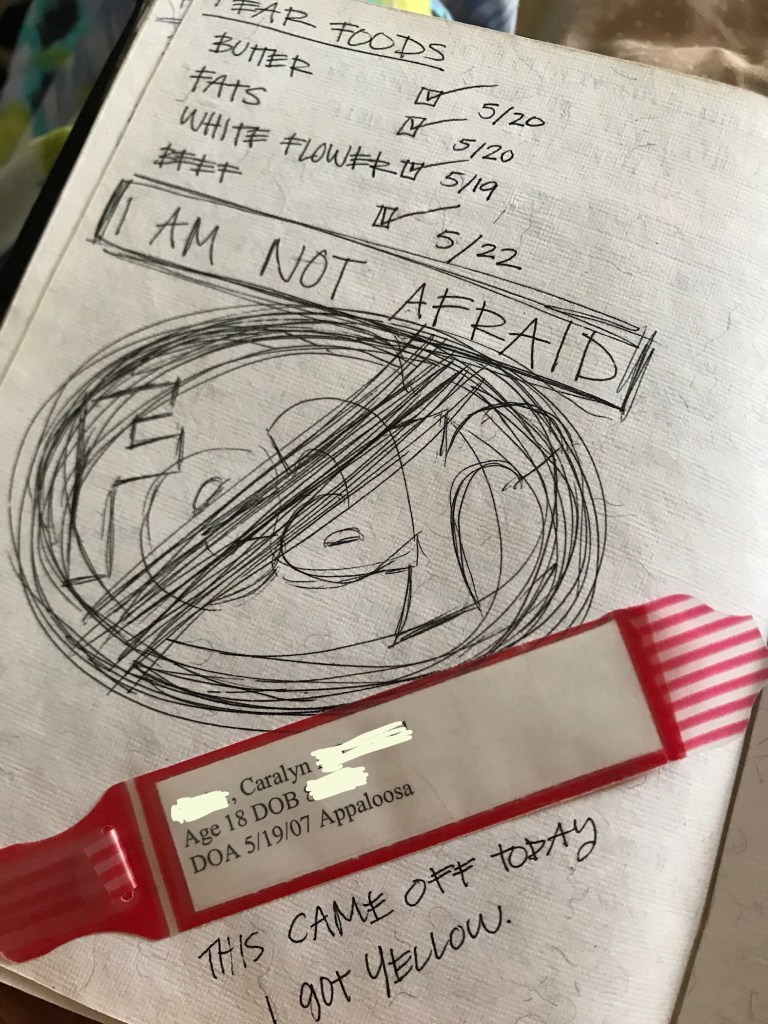 FEAR FOODS
BUTTER 5/20
FATS 5/20
WHITE FLOWER 5/19
BEEF 5/22
I AM NOT AFRAID
, Caralyn
Age 18 DOB
DOA 5/19/07 Appaloosa
THIS CAME OFF TODAY
I GOT YELLOW.